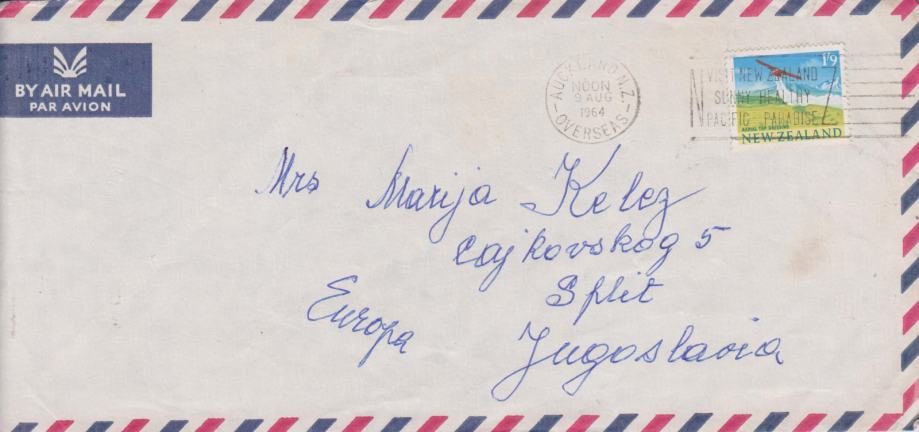 BY AIR MAIL
PAR AVION
AUCKLAND N.Z.
NOON
9 AUG
1964
OVERSEAS
1/9
VISIT NEW ZEALAND
SUNNY HEALTHY
PACIFIC PARADISE
AERIAL TOP DRESSING
NEW ZEALAND
Mrs Marija Kelez
Čajkovskog 5
Split
Europa
Jugoslavia